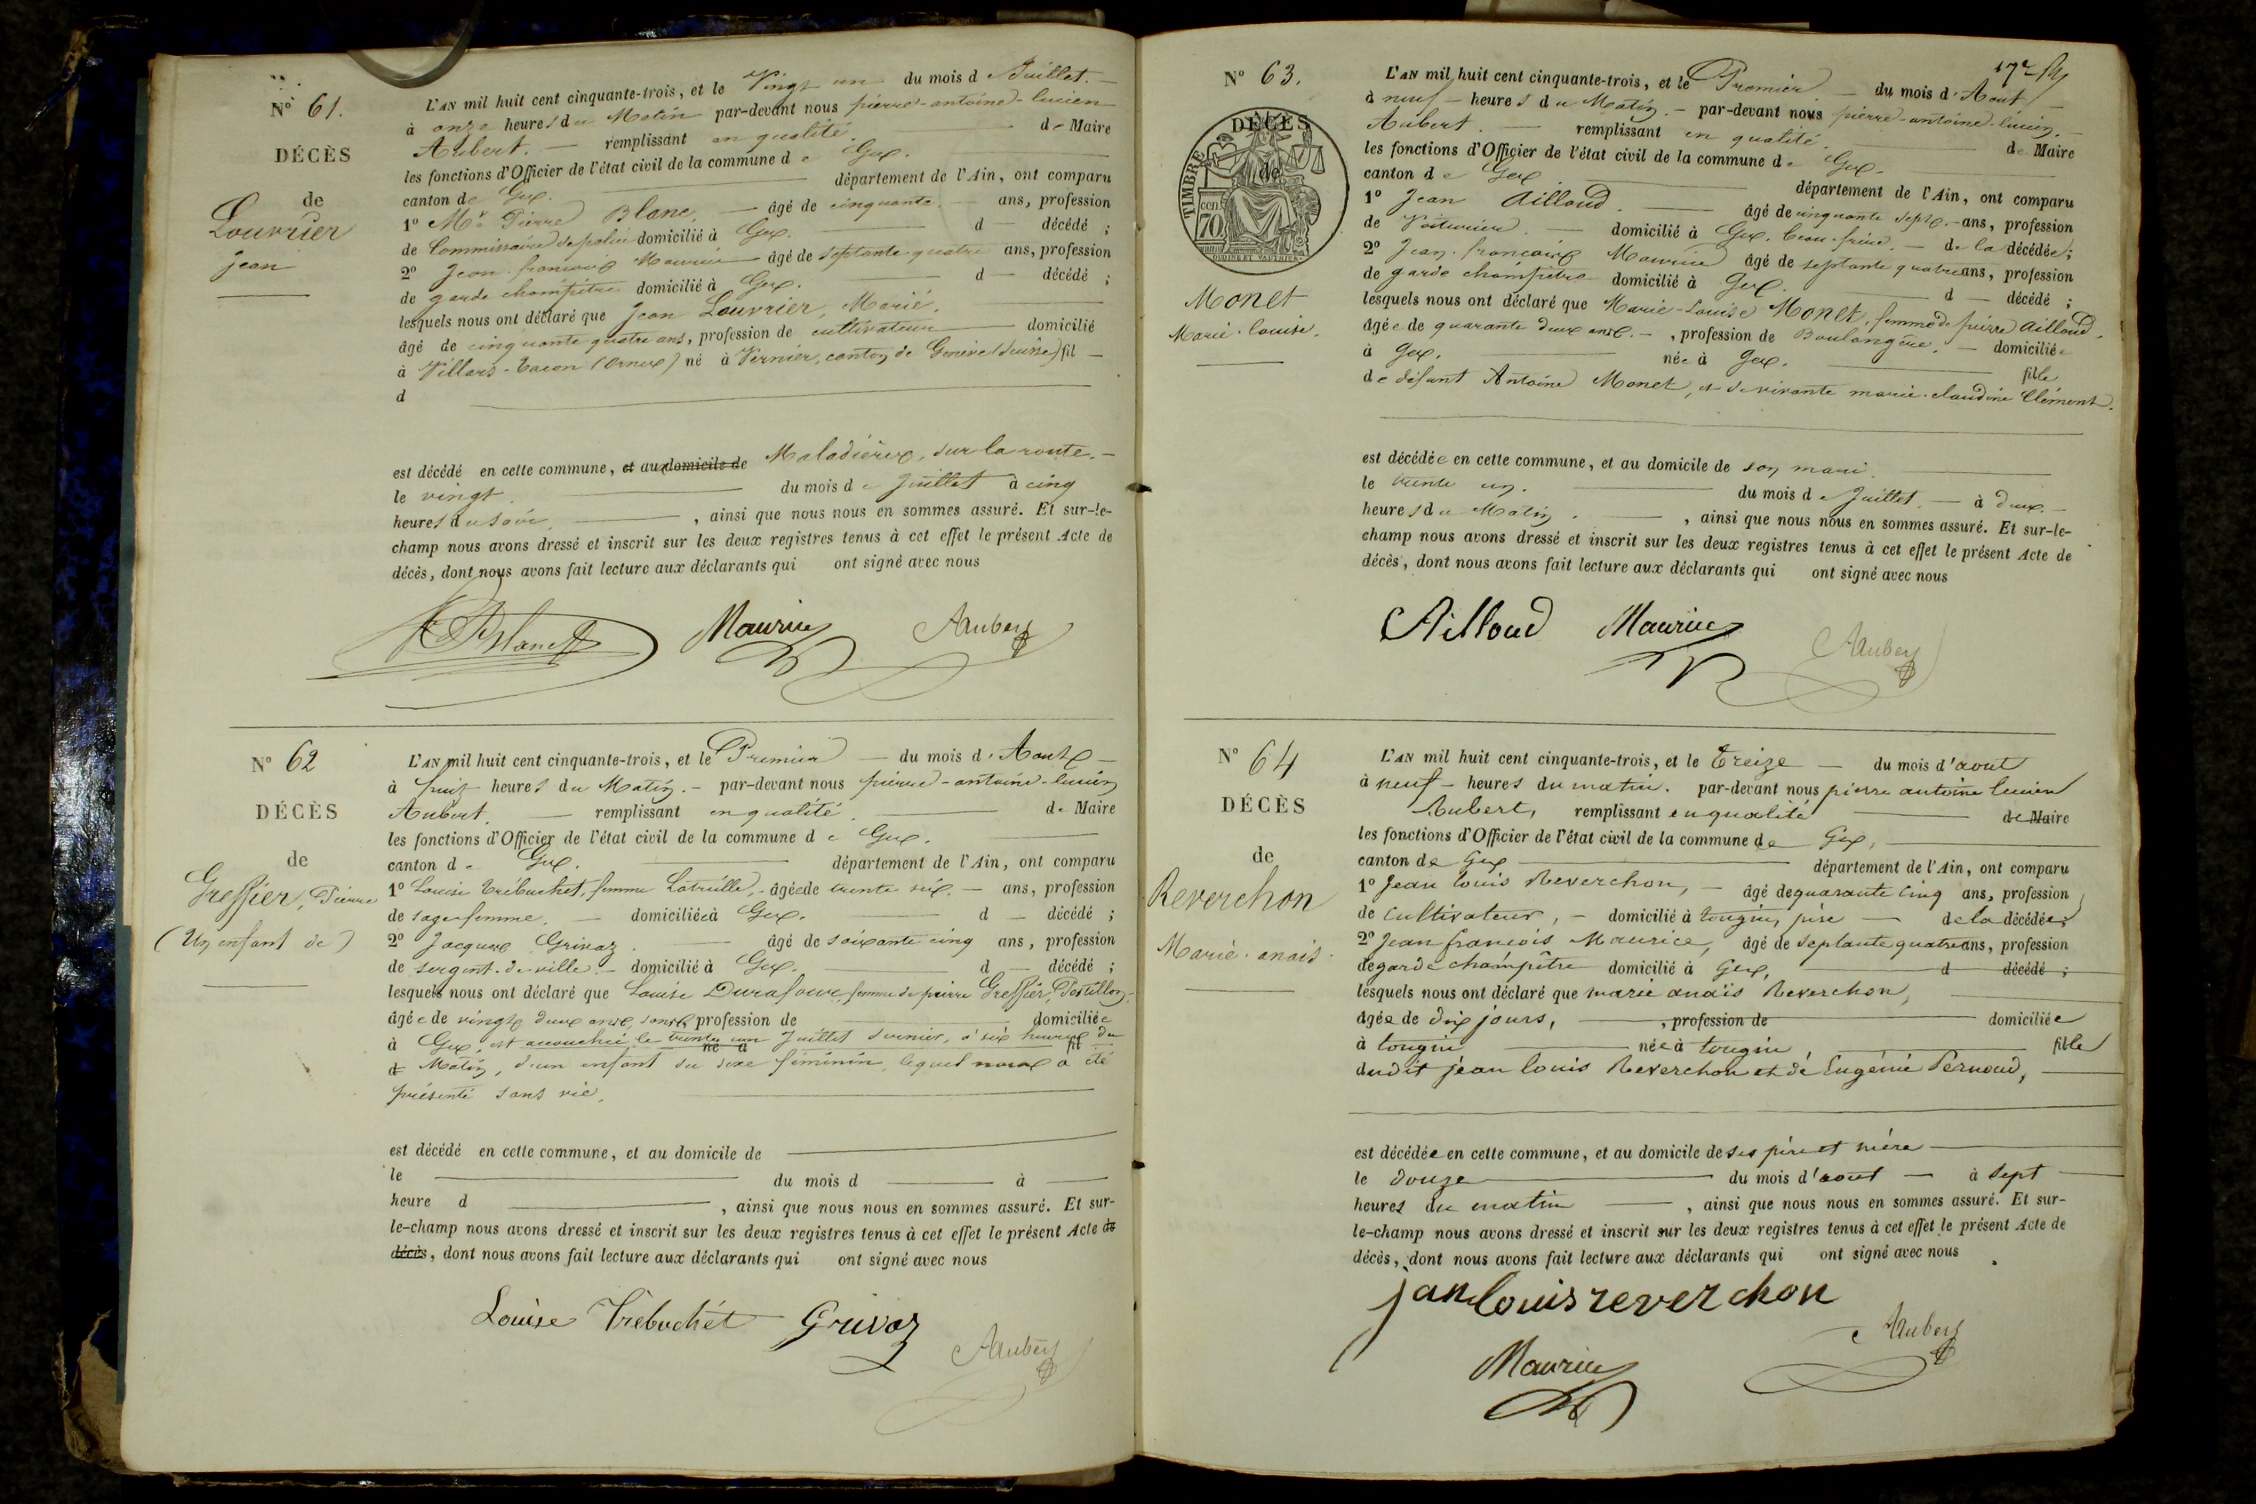 N° 61.
DÉCÈS
de
Louvrier
Jean
L'AN mil huit cent cinquante-trois, et le Vingt un du mois de Juillet.
à onze heures du Matin par-devant nous pierre-antoine-lucien
Aubert. remplissant en qualité de Maire
les fonctions d'Officier de l'état civil de la commune de Gex.
canton de Gex. département de l'Ain, ont comparu
1° Mr Pierre Blanc, âgé de cinquante ans, profession
de Commissaire de police domicilié à Gex. d décédé ;
2° Jean-françois Maurice âgé de septante quatre ans, profession
de garde champêtre domicilié à Gex. d décédé ;
lesquels nous ont déclaré que Jean Louvrier, Marié,
âgé de cinquante quatre ans, profession de cultivateur domicilié
à Villars-Tacon (Ornex) né à Vernier, canton de Genève (Suisse) fil
d
est décédé en cette commune, et aux domicile de Maladières, sur la route.
le vingt. du mois de Juillet à cinq
heures du soir, ainsi que nous nous en sommes assuré. Et sur-le-
champ nous avons dressé et inscrit sur les deux registres tenus à cet effet le présent Acte de
décès, dont nous avons fait lecture aux déclarants qui ont signé avec nous
Blanc Maurice Aubert
N° 62
DÉCÈS
de
Greffier, Pierre
(Un enfant de)
L'AN mil huit cent cinquante-trois, et le Premier du mois d'Aout
à huit heures du Matin. par-devant nous pierre-antoine-lucien
Aubert. remplissant en qualité de Maire
les fonctions d'Officier de l'état civil de la commune de Gex.
canton de Gex. département de l'Ain, ont comparu
1° Louise Trébuchet, femme Latreille, âgée de trente six ans, profession
de sage-femme. domiciliée à Gex. d décédé ;
2° Jacques Grivaz. âgé de soixante cinq ans, profession
de sergent-de-ville. domicilié à Gex. d décédé ;
lesquels nous ont déclaré que Louise Durafour, femme de pierre Greffier, Postillon,
âgée de vingt deux ans, sans profession de domiciliée
à Gex, est accouchée le trente un Juillet dernier, à six heures du
né à fil
d Matin, d'un enfant du sexe féminin, lequel nous a été
présenté sans vie.
est décédé en cette commune, et au domicile de
le du mois d à
heure d , ainsi que nous nous en sommes assuré. Et sur-
le-champ nous avons dressé et inscrit sur les deux registres tenus à cet effet le présent Acte de
décès, dont nous avons fait lecture aux déclarants qui ont signé avec nous
Louise Trébuchét Grivaz
Aubert
N° 63.
DÉCÈS
de
TIMBRE
cen
70
Monet
Marie-Louise.
L'AN mil huit cent cinquante-trois, et le Premier du mois d'Aout
à neuf heures du Matin. par-devant nous pierre-antoine-lucien
Aubert. remplissant en qualité de Maire
les fonctions d'Officier de l'état civil de la commune de Gex.
canton de Gex. département de l'Ain, ont comparu
1° Jean Ailloud âgé de cinquante sept ans, profession
de Voiturier. domicilié à Gex. beau-frère. de la décédée ;
2° Jean-françois Maurice âgé de septante quatre ans, profession
de garde champêtre domicilié à Gex. d décédé ;
lesquels nous ont déclaré que Marie-Louise Monet, femme de pierre Ailloud,
âgée de quarante deux ans. , profession de Boulangère. domiciliée
à Gex. née à Gex. fille
de défunt Antoine Monet, et de vivante marie-claudine Clément.
est décédée en cette commune, et au domicile de son mari
le trente un. du mois de Juillet. à deux
heures du Matin. , ainsi que nous nous en sommes assuré. Et sur-le-
champ nous avons dressé et inscrit sur les deux registres tenus à cet effet le présent Acte de
décès, dont nous avons fait lecture aux déclarants qui ont signé avec nous
Ailloud Maurice Aubert
N° 64
DÉCÈS
de
Reverchon
Marie-anais.
L'AN mil huit cent cinquante-trois, et le treize du mois d'aout
à neuf heures du matin. par-devant nous pierre antoine lucien
Aubert, remplissant en qualité de Maire
les fonctions d'Officier de l'état civil de la commune de Gex,
canton de Gex département de l'Ain, ont comparu
1° Jean louis Reverchon, âgé de quarante cinq ans, profession
de cultivateur, domicilié à tougin, père de la décédée ;
2° Jean françois Maurice, âgé de septante quatre ans, profession
de garde champêtre domicilié à Gex, d décédé ;
lesquels nous ont déclaré que marie anaïs Reverchon,
âgée de dix jours, , profession de domiciliée
à tougin née à tougin, fille
dudit jean louis Reverchon et de Eugénie Pernoud,
est décédée en cette commune, et au domicile de ses père et mère
le douze du mois d'aout à sept
heures du matin , ainsi que nous nous en sommes assuré. Et sur-
le-champ nous avons dressé et inscrit sur les deux registres tenus à cet effet le présent Acte de
décès, dont nous avons fait lecture aux déclarants qui ont signé avec nous
jan louis reverchon
Aubert
Maurice